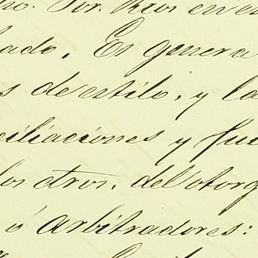 no. Por. Rios en es
lado, En genera
s de estilo, y la
ciliaciones y fue
los otros. del otorg
ó arbitradores: